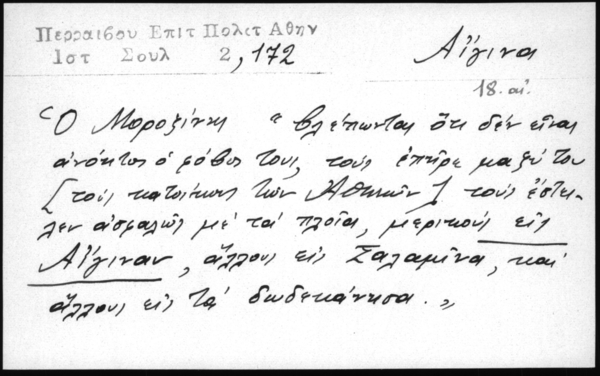 Περραιβου Επιτ Πολετ Αθην
Ιστ Σουλ 2, 172
Αἴγινα
18. αἰ.
Ὁ Μοροζίνης "βλέπωντας ὅτι δέν εἶναι
ἀνόητος ὁ φόβος τους, τούς ἐπῆρε μαζύ του
[τούς κατοίκους τῶν Ἀθηνῶν] τούς ἔστει-
λεν ἀσφαλῶς μέ τά πλοῖα, μερικούς εἰς
Αἴγιναν, ἄλλους εἰς Σαλαμῖνα, καί
ἄλλους εἰς τά δωδεκάνησα."